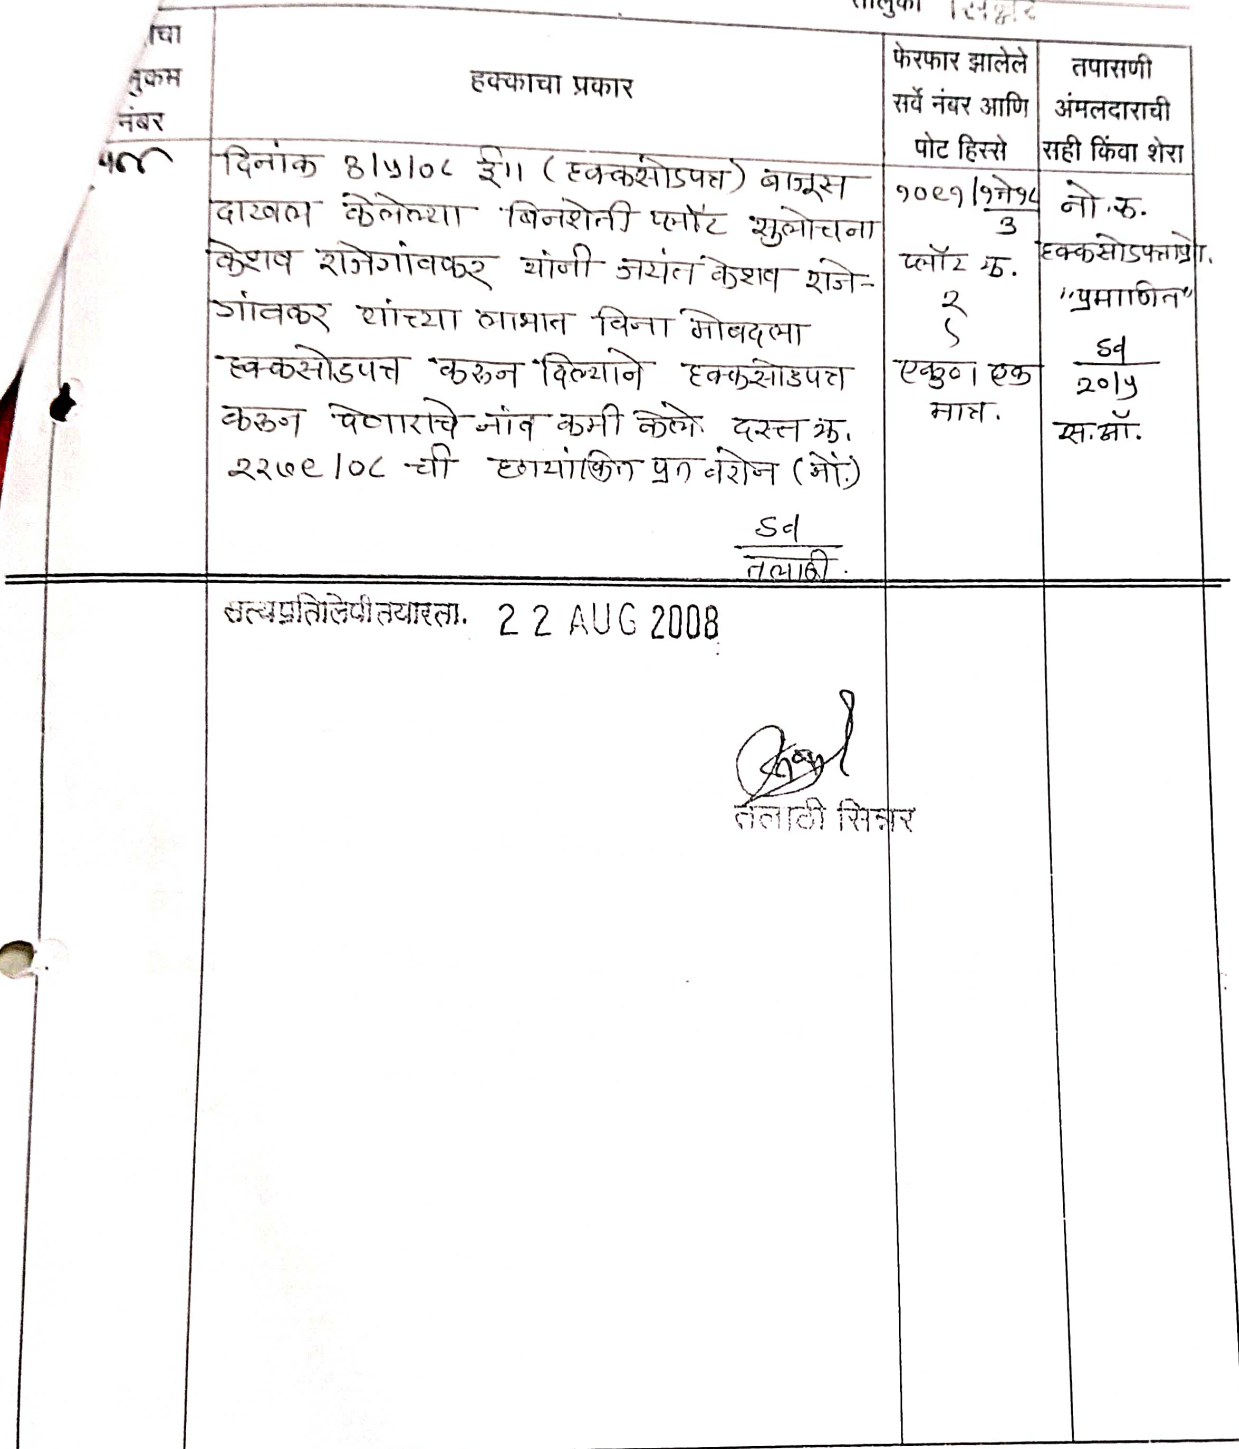 तालुका सिन्नर
ाचा
नुकम
नंबर
हक्काचा प्रकार
फेरफार झालेले
सर्वे नंबर आणि
पोट हिस्से
तपासणी
अंमलदाराची
सही किंवा शेरा
दिनांक ३/५/०८ (हक्कसोडपत्र) बाजूस
दाखल केलेल्या बिनशेती प्लॉट सुलोचना
केशव राजेगांवकर यांनी जयंत केशव राजे-
गांवकर यांच्या लाभात विना मोबदला
हक्कसोडपत्र करून दिल्याने हक्कसोडपत्र
करून देणाराचे नांव कमी केले. दस्त क्र.
२२७९/०८ ची छायांकित प्रत वरोन (नों.)
Sd
तलाठी.
१०९१/१ते१८
३
प्लॉट क्र.
२
एकुण एक
मात्र.
नो.क्र.
हक्कसोडपत्राप्रो.
"प्रमाणित"
Sd
२०/५
स.ऑ.
सत्यप्रतिलिपी तयारता. 22 AUG 2008
तलाठी सिन्नर